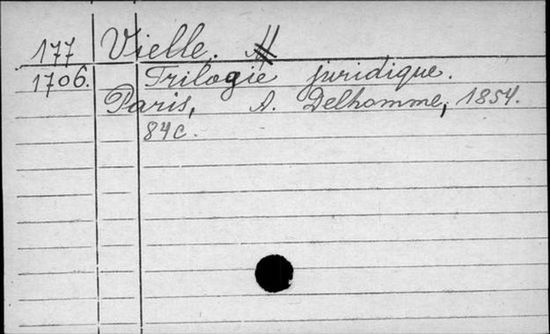 177 Vielle.
1706. Trilogie juridique.
Paris, A. Delhomme, 1854.
84c.